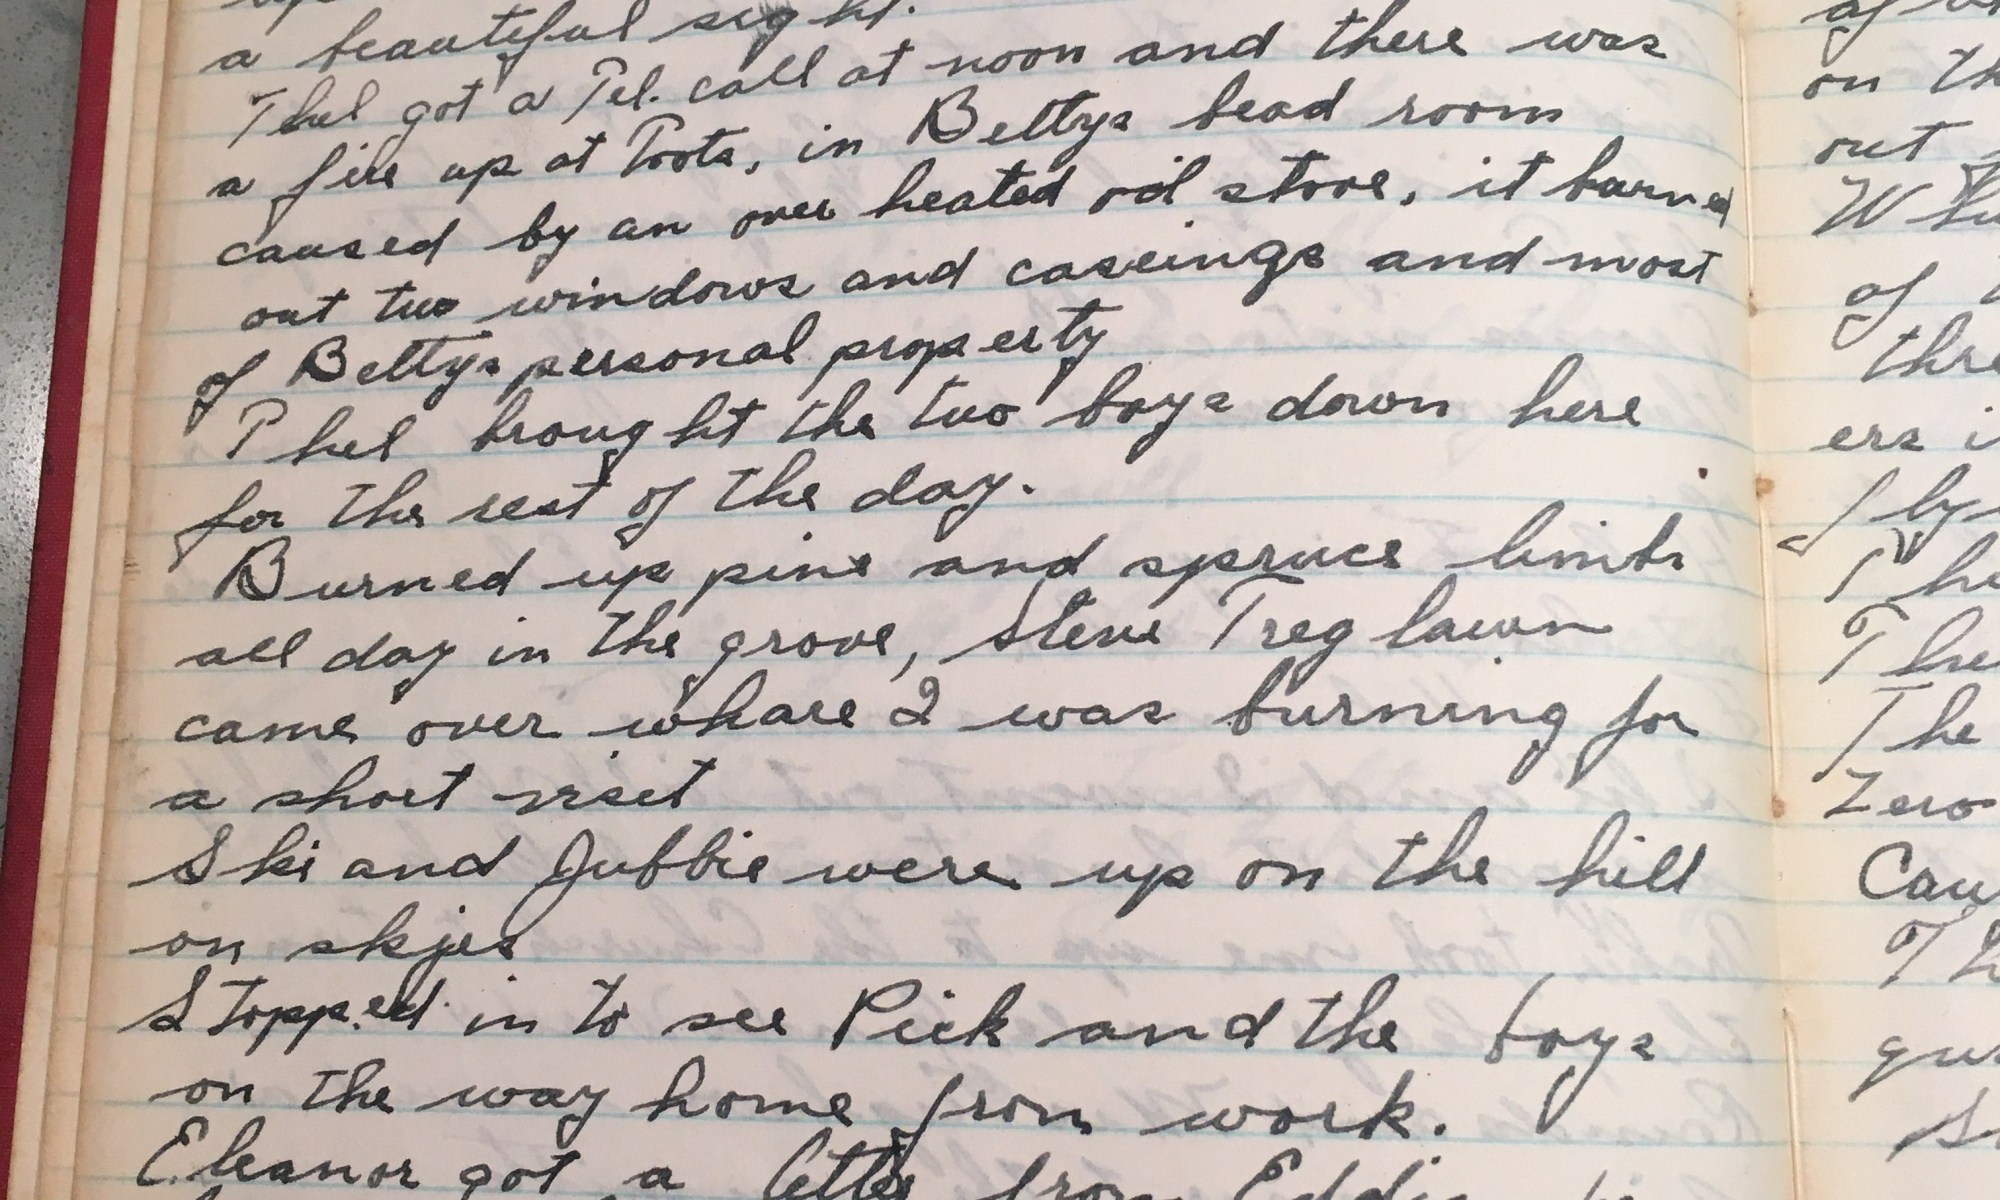 a beautiful sight.
Phel got a Tel. call at noon and there was
a fire up at Toots, in Bettys bead room
caused by an over heated oil stove, it burned
out two windows and caseings and most
of Bettys personal property
Phel brought the two boys down here
for the rest of the day.
Burned up pine and spruce limbs
all day in the grove, Steve Treglawn
came over whare I was burning for
a short viset
Ski and Jubbie were up on the hill
on skjes
Stopped in to see Pick and the boys
on the way home from work.
Eleanor got a letter from Eddie
of
on th
out
of
thre
ers i
The
The
Zero
Cau